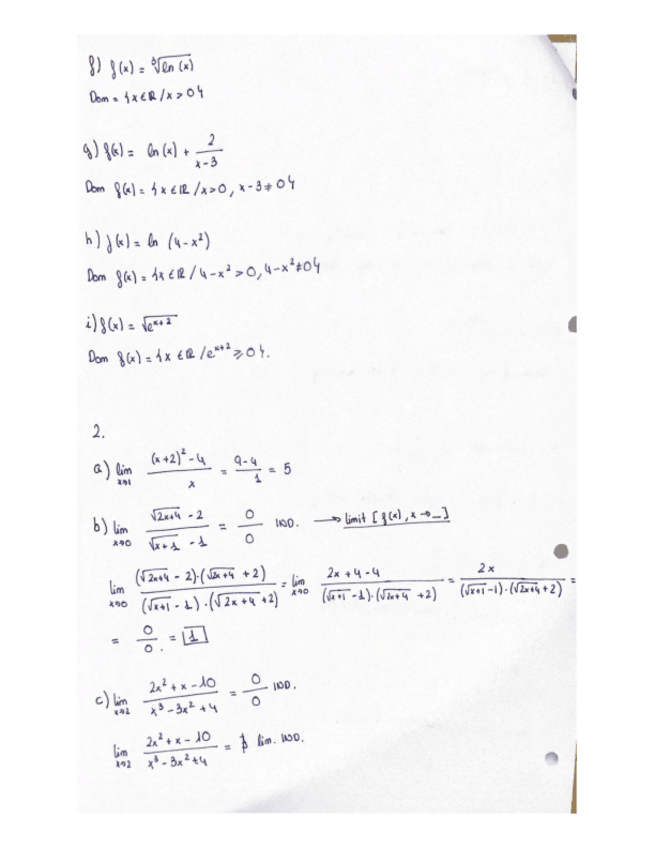 f) f(x) = ∛ln(x)
Dom = {x ∈ ℝ / x > 0}
g) f(x) = ln(x) + 2/(x-3)
Dom f(x) = {x ∈ ℝ / x > 0, x-3 ≠ 0}
h) f(x) = ln (4-x²)
Dom f(x) = {x ∈ ℝ / 4-x² > 0, 4-x² ≠ 0}
i) f(x) = √(e^(x+2))
Dom f(x) = {x ∈ ℝ / e^(x+2) ≥ 0}.
2.
a) lim x→1 ((x+2)² - 4)/x = (9-4)/1 = 5
b) lim x→0 (√(2x+4) - 2)/(√(x+1) - 1) = 0/0 IND. → limit [f(x), x → _]
lim x→0 ((√(2x+4) - 2)·(√(2x+4) + 2))/((√(x+1) - 1)·(√(2x+4) + 2)) = lim x→0 (2x+4-4)/((√(x+1) - 1)·(√(2x+4) + 2)) = 2x/((√(x+1) - 1)·(√(2x+4) + 2)) =
= 0/0 = 1
c) lim x→2 (2x² + x - 10)/(x³ - 3x² + 4) = 0/0 IND.
lim x→2 (2x² + x - 10)/(x³ - 3x² + 4) = ∄ lim. IND.